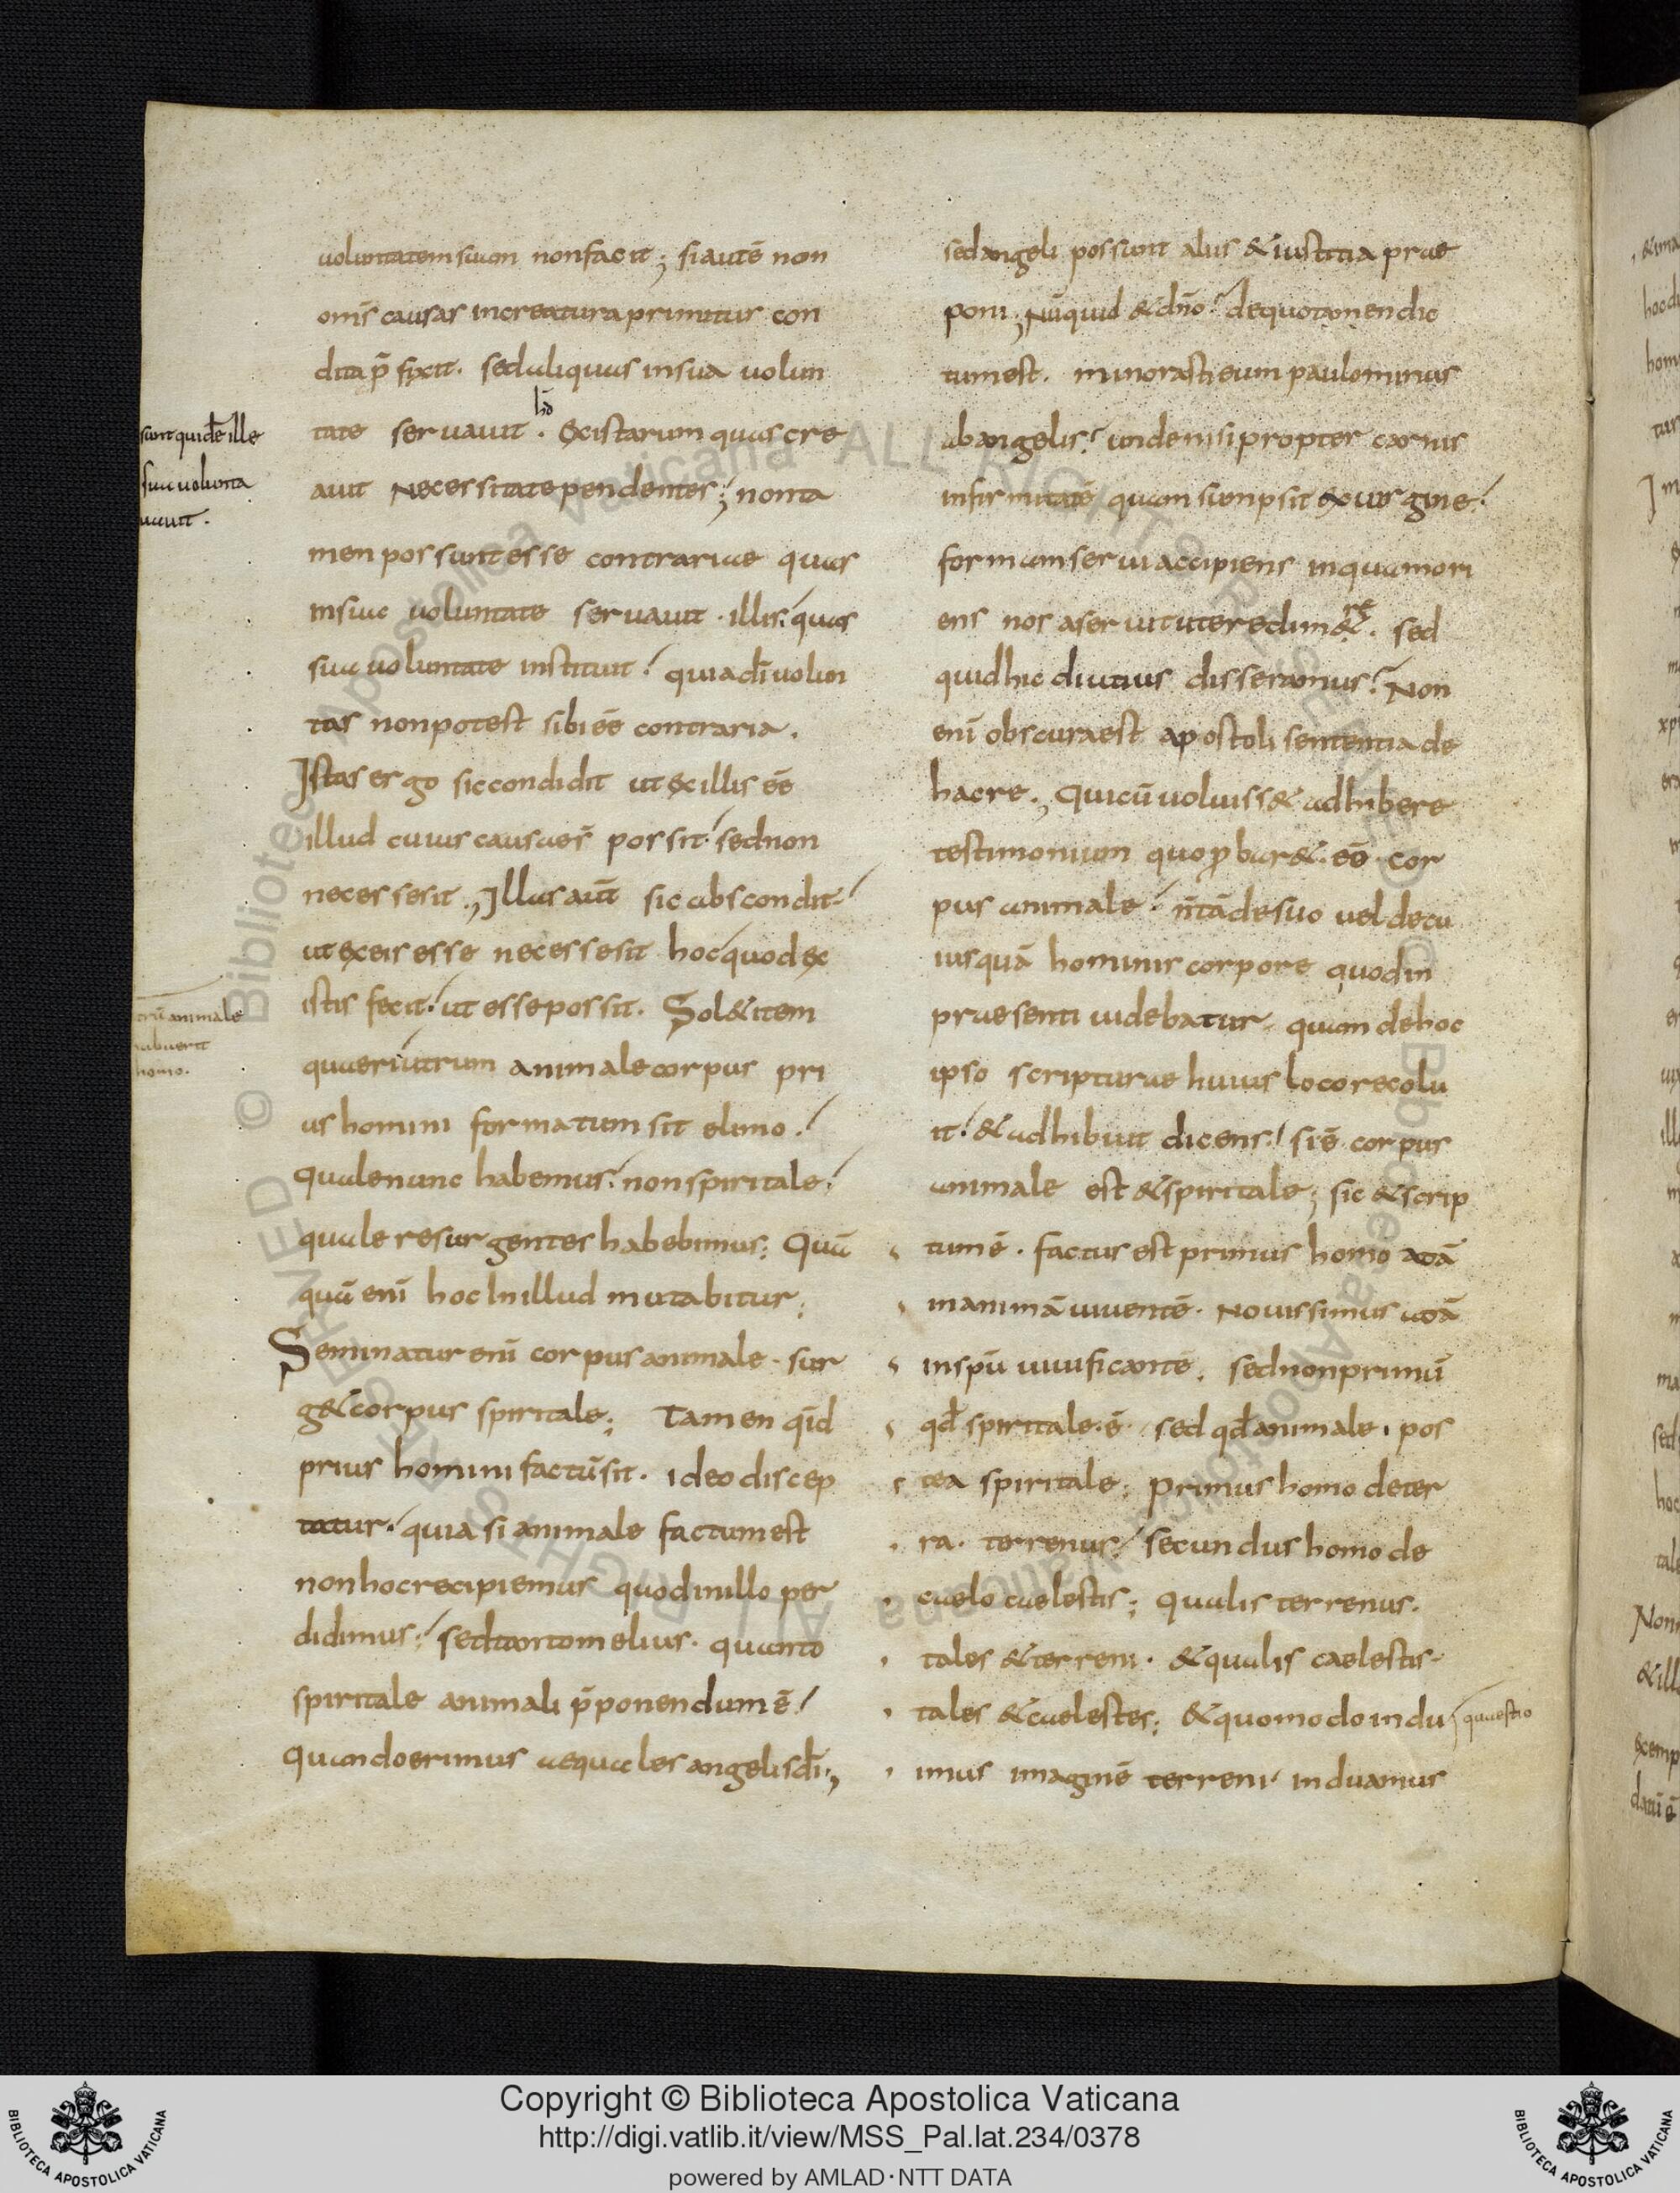 uoluntatem suam non facit; si autē non
omīs causas in creatura primitus con
dita p̄fixit. sed aliquas in sua uolun
tate seruauit. Ex istarum quas cre
auit necessitate pendentes; non ta
men possunt esse contrariae quas
in sua uoluntate seruauit. illis: quas
sua uoluntate instituit! quia dī uolun
tas non potest sibi eē contraria.
Istas ergo sic condidit ut ex illis eē
illud cuius causae s̄ possit! sed non
necesse sit., Illas aut̄ sic abscondit!
ut ex eis esse necesse sit hoc quod ex
istis fecit! ut esse possit. Sol& item
quaeri utrum animale corpus pri
us homini formatum sit e limo!
quale nunc habemus! non spiritale!
quale resurgentes habebimus; Quā
quā enī hoc In illud mutabitur;
Seminatur enī corpus animale. sur
g& corpus spiritale; Tamen qid
prius homini factū sit. ideo discep
tatur! quia si animale factum est
non hoc recipiemus quod in illo per
didimus! sed tanto melius. quanto
spiritale animali p̄ponendum ē!
quando erimus aequales angelis dī.,
sunt quidē ille
suae uolunta
uauit.
trū animale
habuerit
homo.
hd
sed angeli possunt aliis & iustitia prae
poni; Nūquid & dn̄o! de quo tamen dic
tum est. minorasti eum paulo minus
ab angelis! unde nisi propter carnis
infirmitatē quam sumpsit ex uirgine!
formam serui accipiens in qua mori
ens nos a seruitute redim&re. sed
quid hic diutius disseramus! Non
enī obscura est apostoli sententia de
hac re., qui cū uoluiss& adhibere
testimonium quo ꝓbar& eē cor
pus animale! n̄ tā de suo uel de cu
iusquā hominis corpore quod in
praesenti uidebatur. quam de hoc
ipso scripturae huius loco recolu
it! & adhibuit dicens! si ē corpus
animale est & spiritale; sic & scrip
tum ē. factus est primus homo adā
in animā uiuentē. Nouissimus adā
in spū uiuificantē; sed non primū
qđ spiritale ē. sed qđ animale. pos
tea spiritale; Primus homo de ter
ra. terrenus! secundus homo de
caelo caelestis; qualis terrenus.
tales & terreni. & qualis caelestis.
tales & caelestes; & quomodo indu
imus imaginē terreni. induamus
quaestio
Copyright © Biblioteca Apostolica Vaticana
http://digi.vatlib.it/view/MSS_Pal.lat.234/0378
powered by AMLAD·NTT DATA